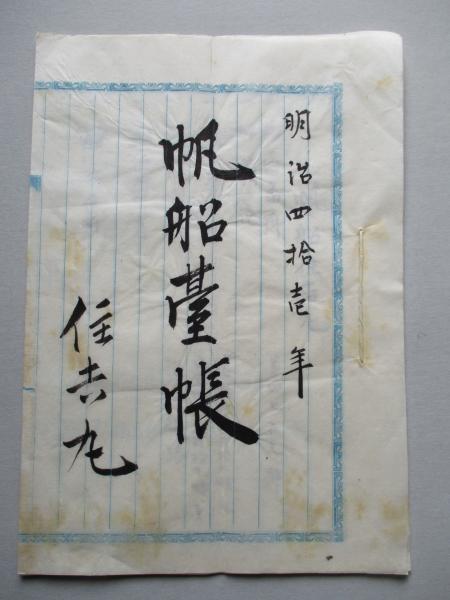 明治四拾壱年
帆船臺帳
住吉丸